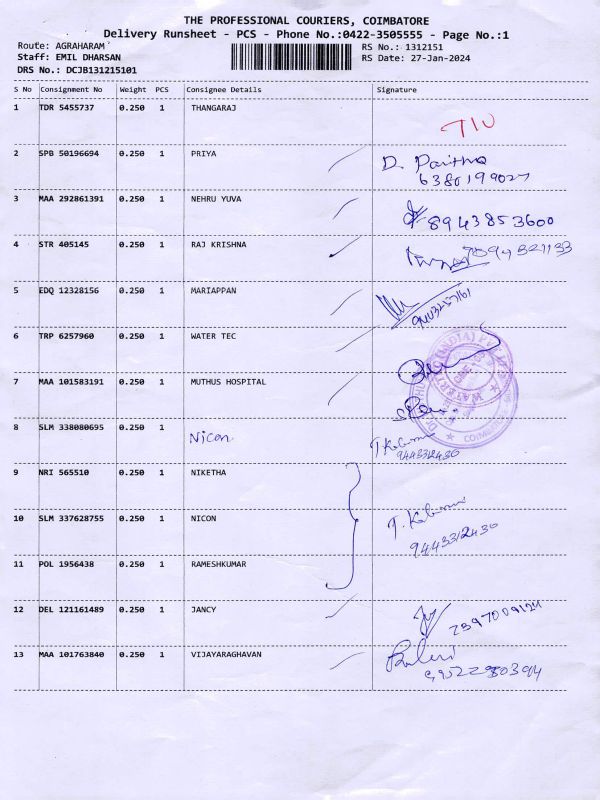 THE PROFESSIONAL COURIERS, COIMBATORE
Delivery Runsheet - PCS - Phone No.:0422-3505555 - Page No.:1
Route: AGRAHARAM
Staff: EMIL DHARSAN
DRS No.: DCJB131215101
RS No.: 1312151
RS Date: 27-Jan-2024
S No Consignment No Weight PCS Consignee Details Signature
1 TDR 5455737 0.250 1 THANGARAJ
2 SPB 50196694 0.250 1 PRIYA D.
6380199027
3 MAA 292861391 0.250 1 NEHRU YUVA 8943853600
4 STR 405145 0.250 1 RAJ KRISHNA
5 EDQ 12328156 0.250 1 MARIAPPAN
6 TRP 6257960 0.250 1 WATER TEC
7 MAA 101583191 0.250 1 MUTHUS HOSPITAL
8 SLM 338080695 0.250 1 Nicon
9443312430
9 NRI 565510 0.250 1 NIKETHA
10 SLM 337628755 0.250 1 NICON
9443312430
11 POL 1956438 0.250 1 RAMESHKUMAR
12 DEL 121161489 0.250 1 JANCY
13 MAA 101763840 0.250 1 VIJAYARAGHAVAN